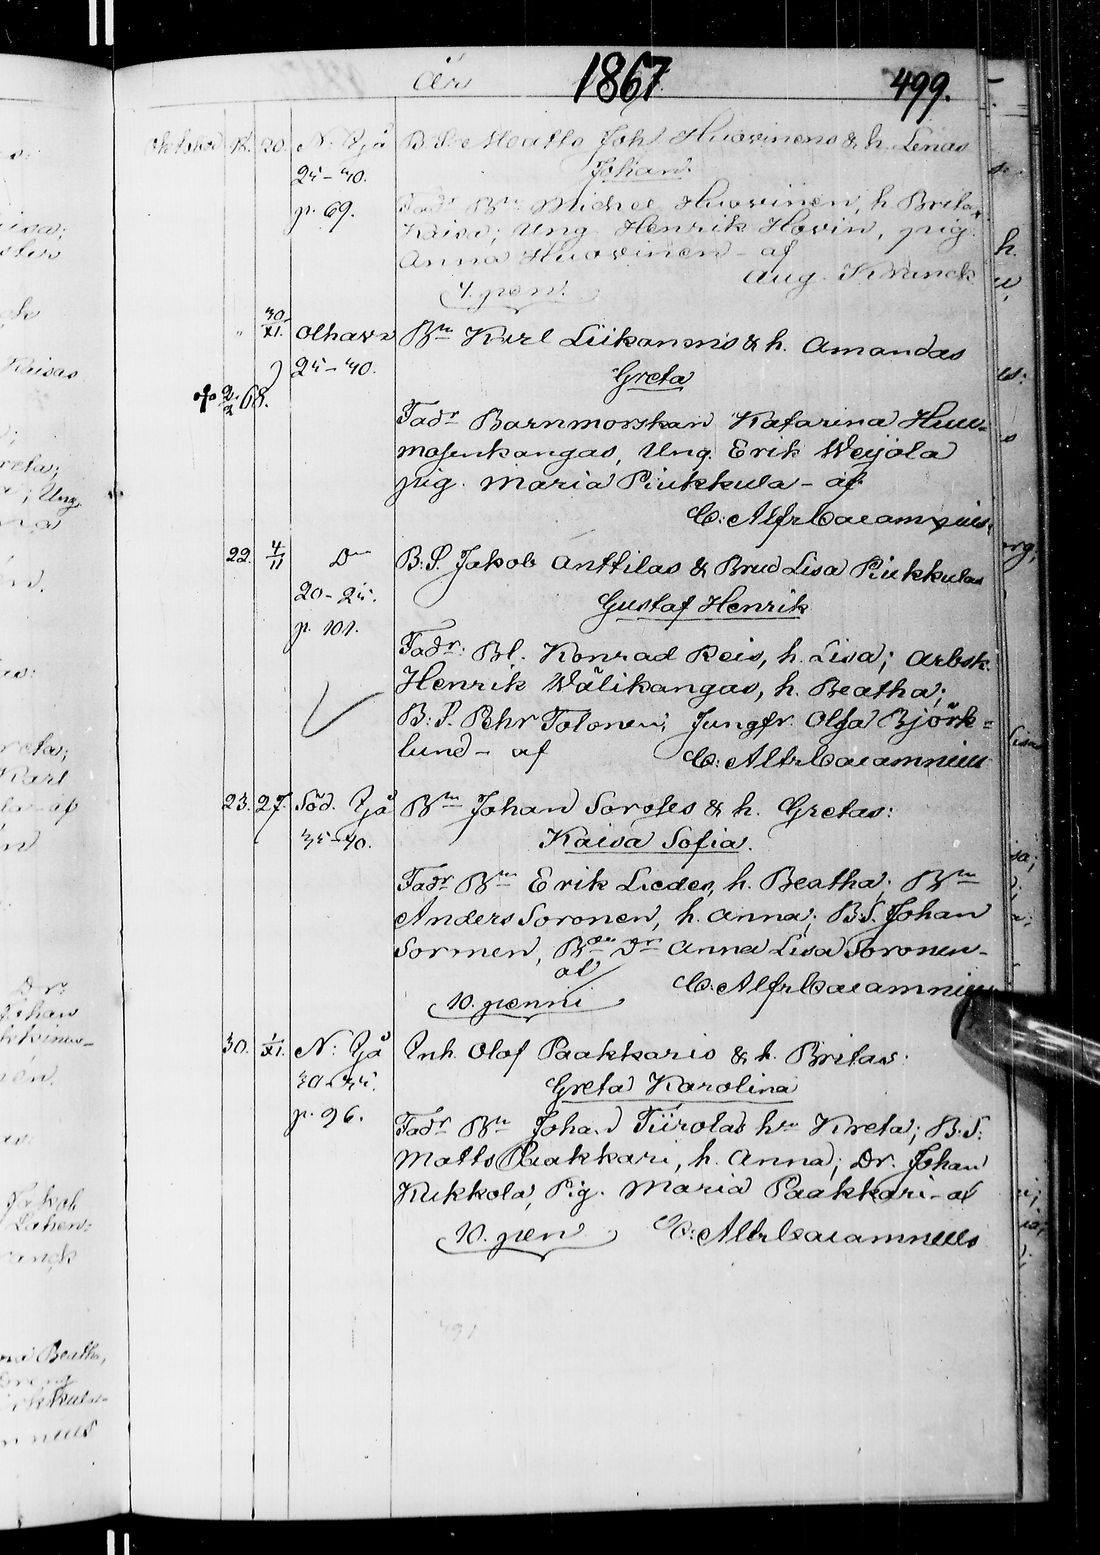 år 1867 499.
Oktober 18. 20. N: Ijå B. S. Matts Joh Huovinens & h. Lenas
25-40. Johan.
p. 69. Fadr Bn Michel Huovinen, h. Brita
Kaisa; Ung. Henrik Hovin, pig.
Anna Huovinen - af
Aug. Krank
pen.
" 30/XI. Olhava Bn Karl Liikanens & h. Amandas
25-40. Greta
2/2 68.
Fadr Barnmorskan Katarina
kangas, Ung. Erik Weijola
pig. Maria Piukkula - af
C: Alfr Calamnius.
22. 4/11 Do B. S. Jakob Anttilas & Brud Lisa Piukkulas
20-25. Gustaf Henrik
p. 101.
Fadr: Bl. Konrad Reis, h. Lisa; Arbsk.
Henrik Wälikangas, h. Beatha;
B: S. Pehr Tolonen, Jungfr. Olga Björk=
lund - af C: Alfr Calamnius
23. 27. Söd. Ijå Bn Johan Soroses & h. Gretas:
35-40. Kaisa Sofia.
Fadr Bn Erik Liedes, h. Beatha; Bn
Anders Soronen, h. Anna; B. S. Johan
Sormen, Bde Dr Anna Lisa Soronen -
af C: Alfr Calamnius
10. penni
30. 1/XI. N: Ijå Inh. Olof Paakkaris & h. Britas:
30-35. Greta Karolina
p. 96.
Fadr Bn Johan Tiirola hn Kreta; B. S.
Matts Paakkari, h. Anna; Dr. Johan
Kukkola, Pig. Maria Paakkari - af
10. pen C: Alfr Calamnius